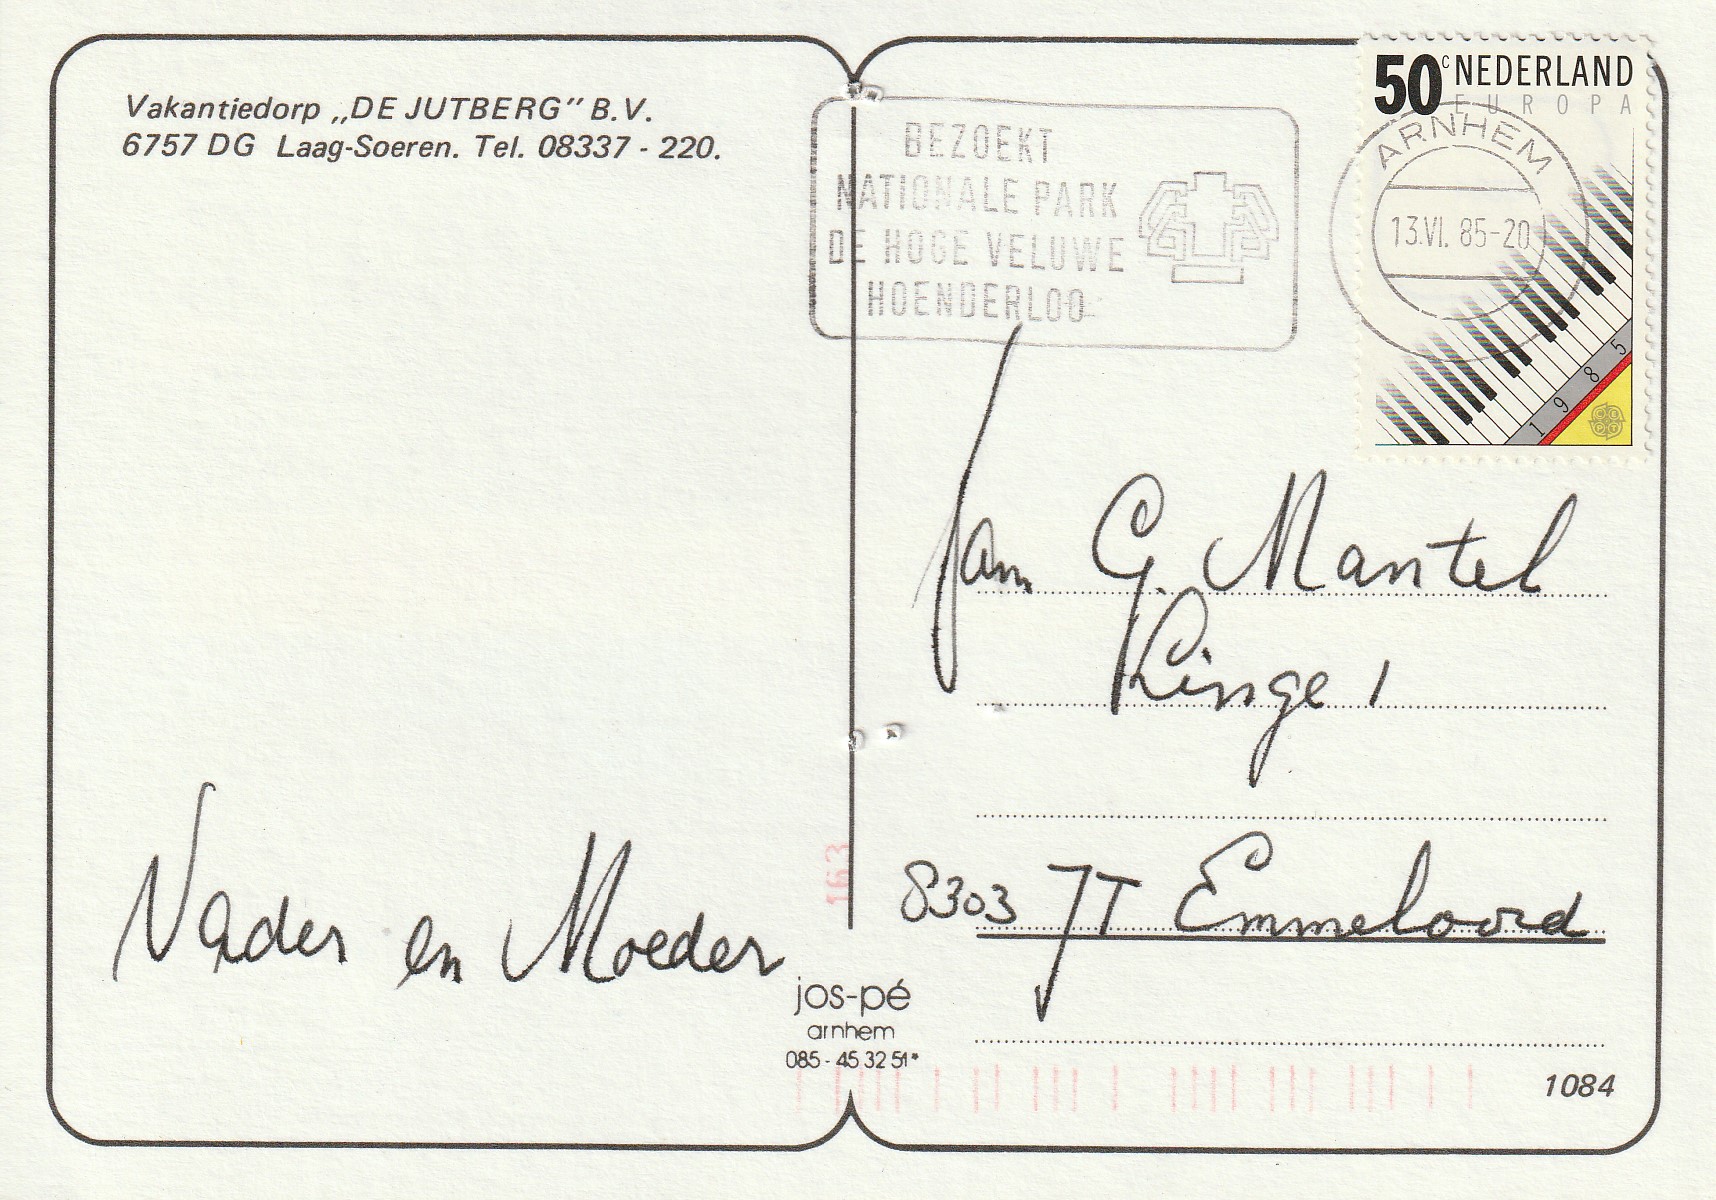 Vakantiedorp „DE JUTBERG” B.V.
6757 DG Laag-Soeren. Tel. 08337 - 220.
50c NEDERLAND
EUROPA
BEZOEKT
NATIONALE PARK
DE HOGE VELUWE
HOENDERLOO
ARNHEM
13.VI. 85-20
1985
CEPT
Jan G. Mantel
Linge 1
8303 JT Emmeloord
Vader en Moeder
163
jos-pé
arnhem
085 - 45 32 51*
1084